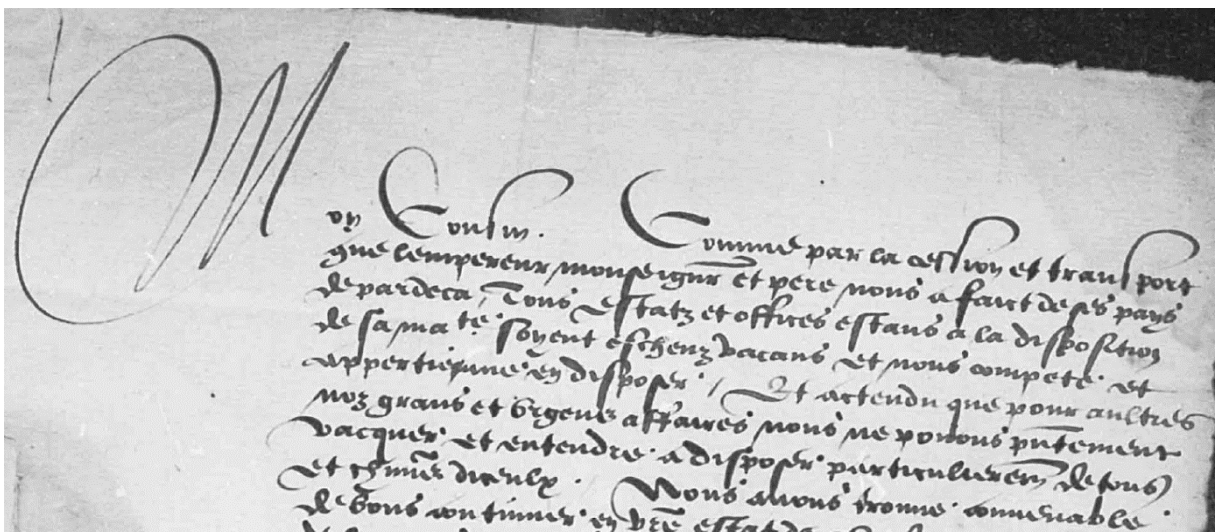 Mon Cousin. Comme par la cession et transport
que lempereur monseignr et pere nous a faict de ses pays
de pardeca, Tous estatz et offices estans a la disposition
de sa mate soyent escheuz vacans et nous compete et
appertiengne en disposer, Et actendu que pour aultres
noz grans et urgens affaires nous ne pouons pntement
vacquer et entendre a disposer particulierem de tous
et chuns diceulx. Nous auons trouue conuenable
de vous continuer en vre estat de